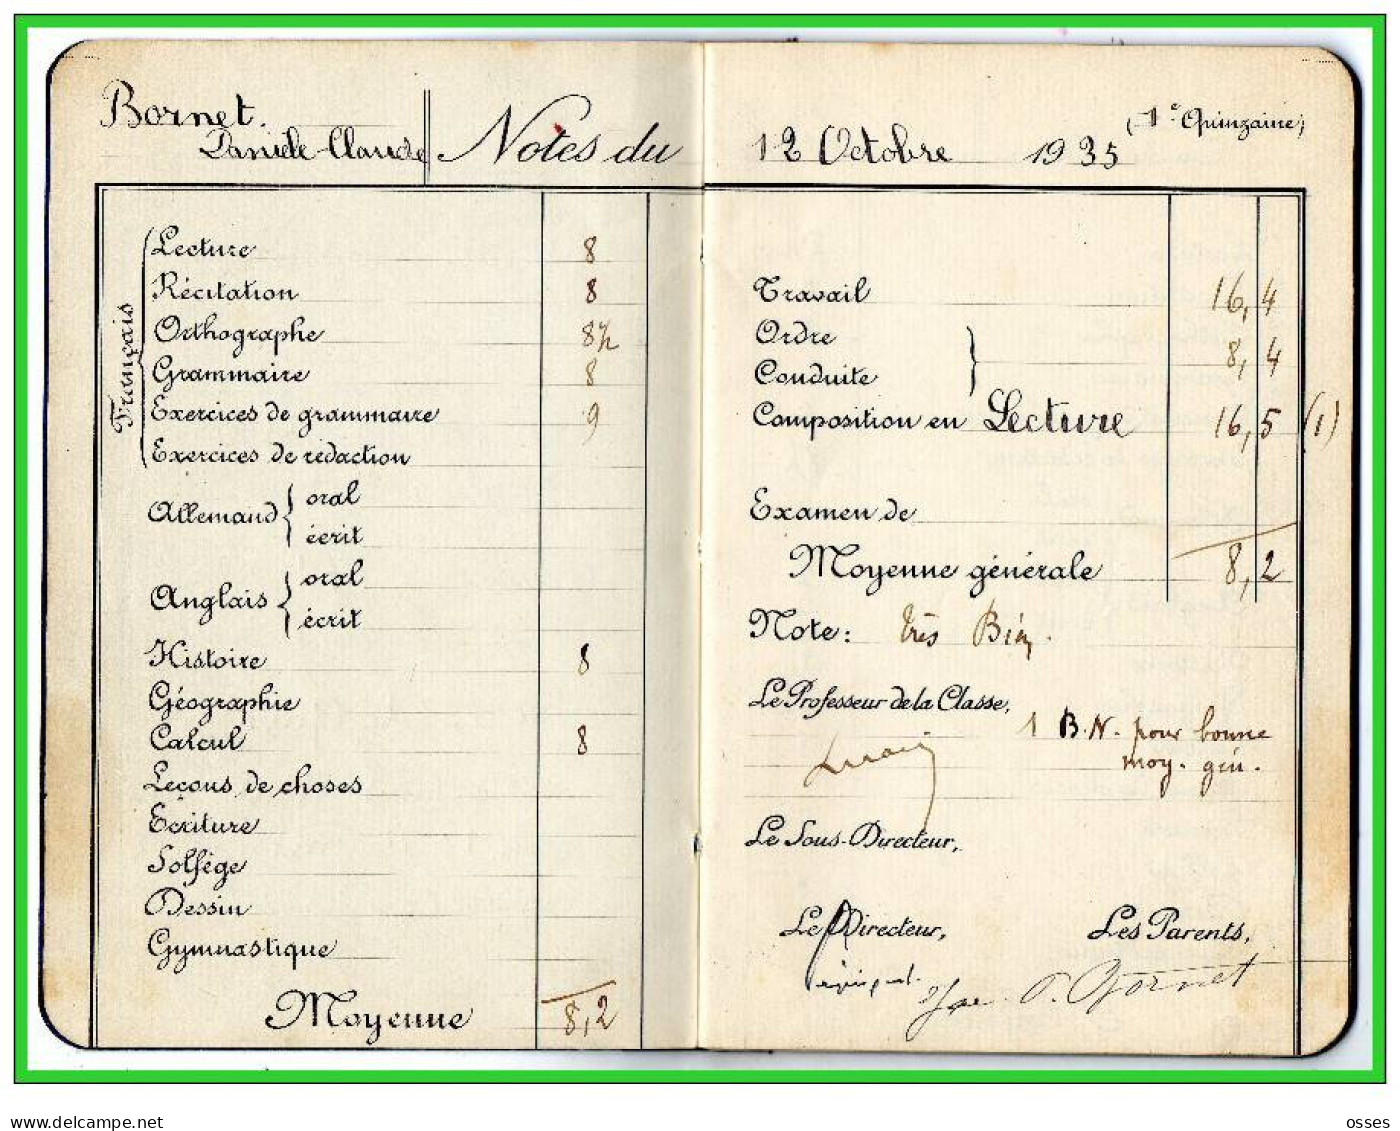 Bornet.
Danièle-Claude
Notes du 12 Octobre 1935 (1e Quinzaine)
Français
Lecture 8
Récitation 8
Orthographe 8 1/2
Grammaire 8
Exercices de grammaire 9
Exercices de rédaction
Allemand { oral
écrit
Anglais { oral
écrit
Histoire 8
Géographie
Calcul 8
Leçons de choses
Ecriture
Solfège
Dessin
Gymnastique
Moyenne 8,2
Travail 16,4
Ordre
Conduite } 8,4
Composition en Lecture 16,5 (1)
Examen de
Moyenne générale 8,2
Note: très Bien.
Le Professeur de la Classe,
1 B.N. pour bonne
moy. gén.
Le Sous-Directeur,
Le Directeur, Les Parents,
Bornet
delcampe.net
osses